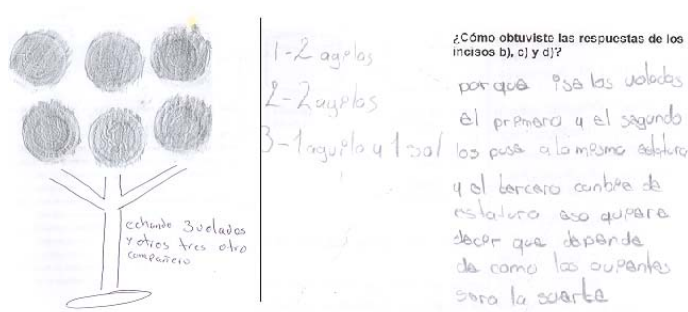 echando 3 volados
y otros tres otro
compañero
1-2 agelas
2-2 agelas
3-1 aguila y 1 sol
¿Cómo obtuviste las respuestas de los
incisos b), c) y d)?
por que ise los volados
el primero y el segundo
los puse a la misma estatura
y el tercero canbie de
estatura eso qupere
decer que depende
de como los aupentes
sera la suerte